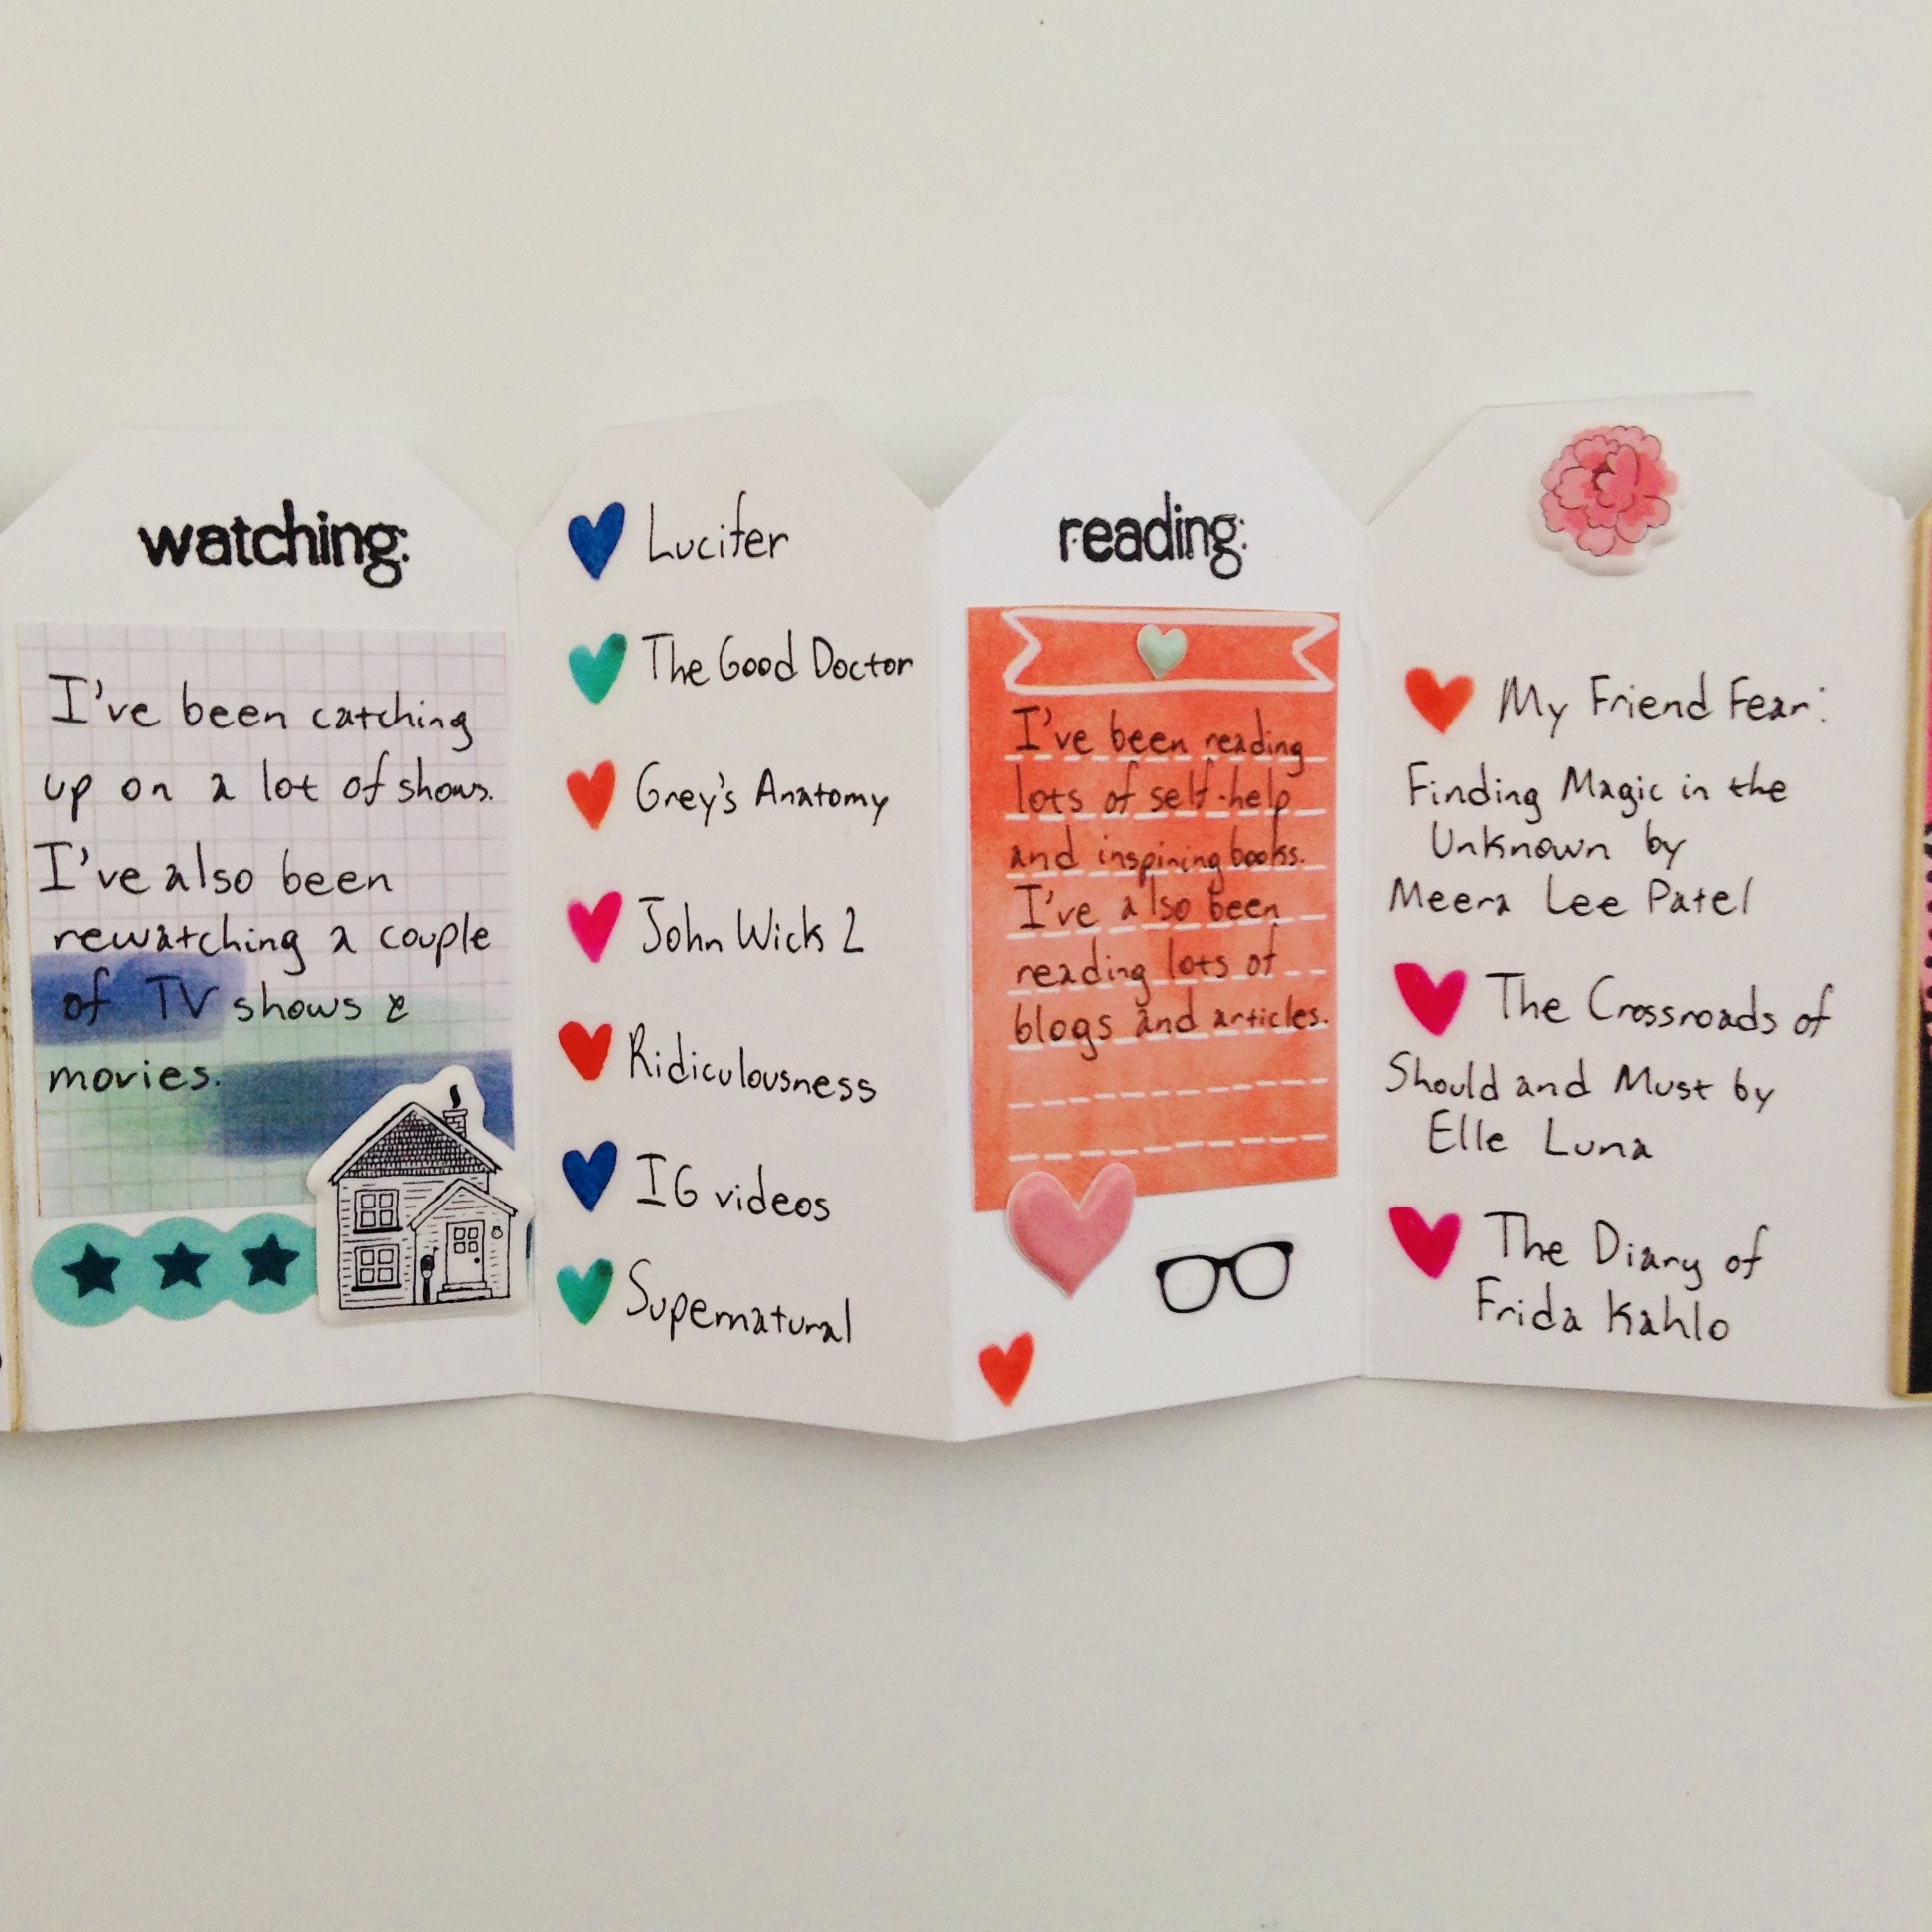 watching:
I've been catching
up on a lot of shows.
I've also been
rewatching a couple
of TV shows &
movies.
Lucifer
The Good Doctor
Grey's Anatomy
John Wick 2
Ridiculousness
IG videos
Supernatural
reading:
I've been reading
lots of self-help
and inspiring books.
I've also been
reading lots of
blogs and articles.
My Friend Fear:
Finding Magic in the
Unknown by
Meera Lee Patel
The Crossroads of
Should and Must by
Elle Luna
The Diary of
Frida Kahlo